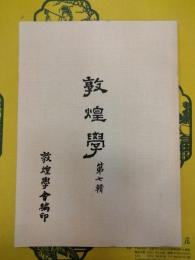 敦煌學
第七輯
敦煌學會編印